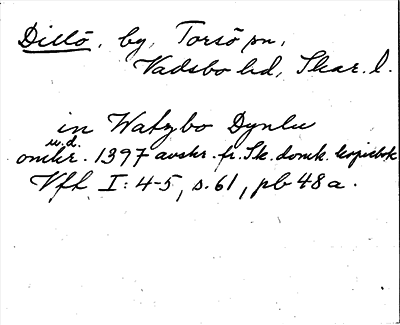 Dillö, by, Torsö sn,
Vadsbo hd, Skar. l.
in Watzbo Dynlu
u.d.
omkr. 1397 avskr. fr. Sk. domk. kopiebok
Vft I: 4-5, s. 61, pb 48 a.